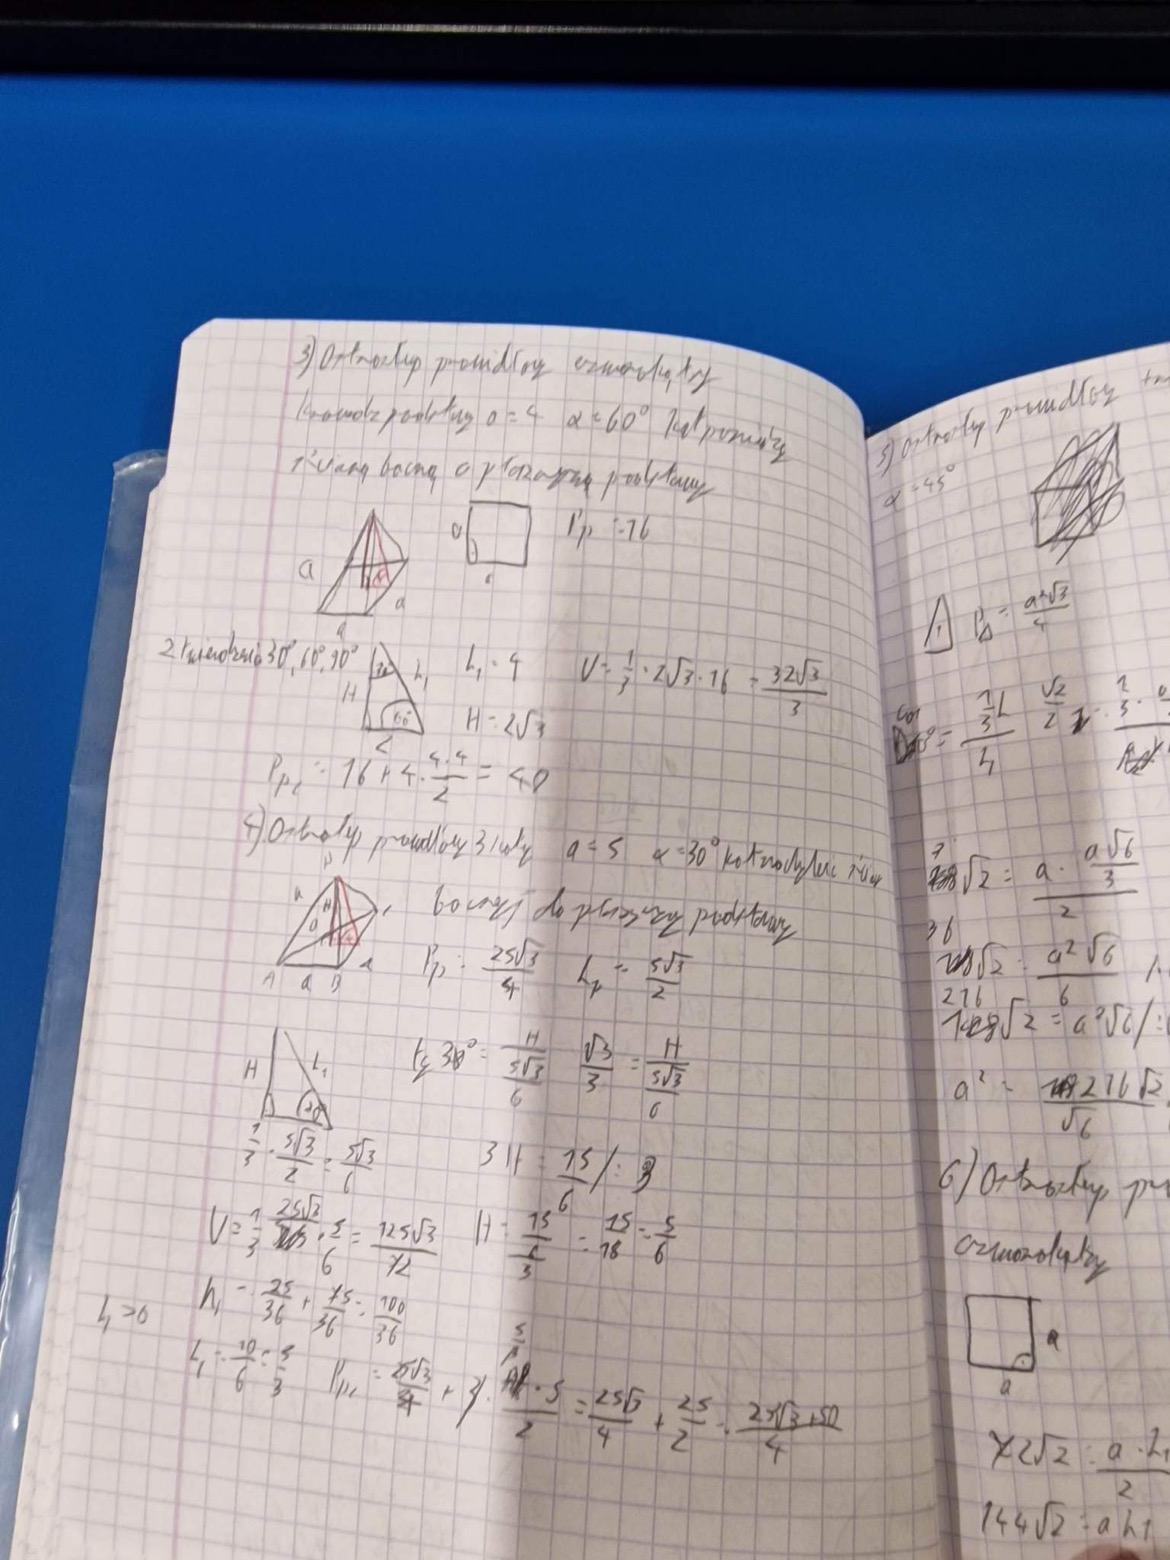 3) Ostrosłup prawidłowy czworokątny
krawędź podstawy a = 4 α = 60° kąt pomiędzy
ścianą boczną a płaszczyzną podstawy
a a a
a Pp = 16
30°, 60°, 90°
H 30° h₁ 60° 2
h₁ = 4
H = 2√3
V = 1/3 · 2√3 · 16 = 32√3/3
Ppc = 16 + 4 · 4·4/2 = 40
4) Ostrosłup prawidłowy 3kąty a = 5 α = 30° kąt nachylenia ściany
bocznej do płaszczyzny podstawy
A a B a
Pp = 25√3/4 hp = 5√3/2
H h₁ 30°
tg 30° = H/(5√3/6) √3/3 = H/(5√3/6)
1/3 · 5√3/2 = 5√3/6
3H = 15/6 /: 3
V = 1/3 · 25√3/4 · 5/6 = 125√3/72
H = 15/6/3 = 15/18 = 5/6
h₁ = 25/36 + 75/36 = 100/36
h₁ > 0
h₁ = 10/6 = 5/3
Ppc = 25√3/4 + 3 · 5/3 · 5/2 = 25√3/4 + 25/2 = 25√3+50/4
5) Ostrosłup prawidłowy
α = 45°
P△ = a²√3/4
cos 45° = 1/3h/h₁ √2/2
36√2 = a · a√6/3 / 2
36√2 = a²√6/6
216√2 = a²√6 /:
a² = 216√2/√6
6) Ostrosłup
czworokątny
a
a
72√2 = a · h₁/2
144√2 = a h₁